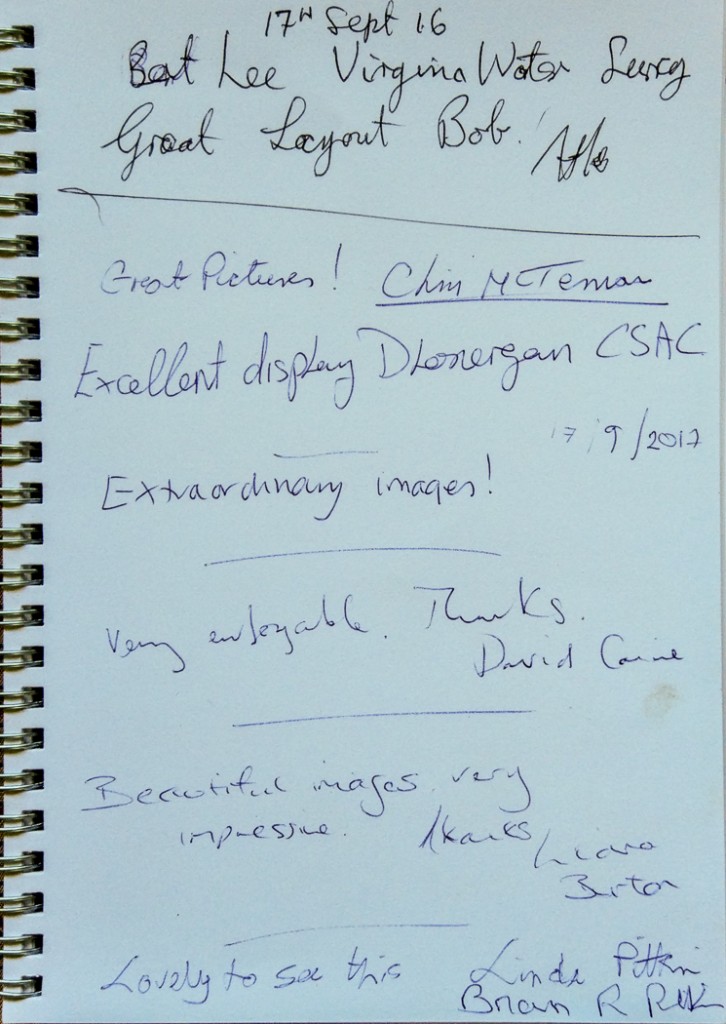 17th Sept 16
Bert Lee Virginia Water Surrey
Great Layout Bob!
Great Pictures! Chris McTernan
Excellent display D Lonergan CSAC
17/9/2017
Extraordinary images!
Very enjoyable. Thanks.
David Caine
Beautiful images very
impressive. Thanks
Burton
Lovely to see this Linda Pitkin
Brian R Pitkin